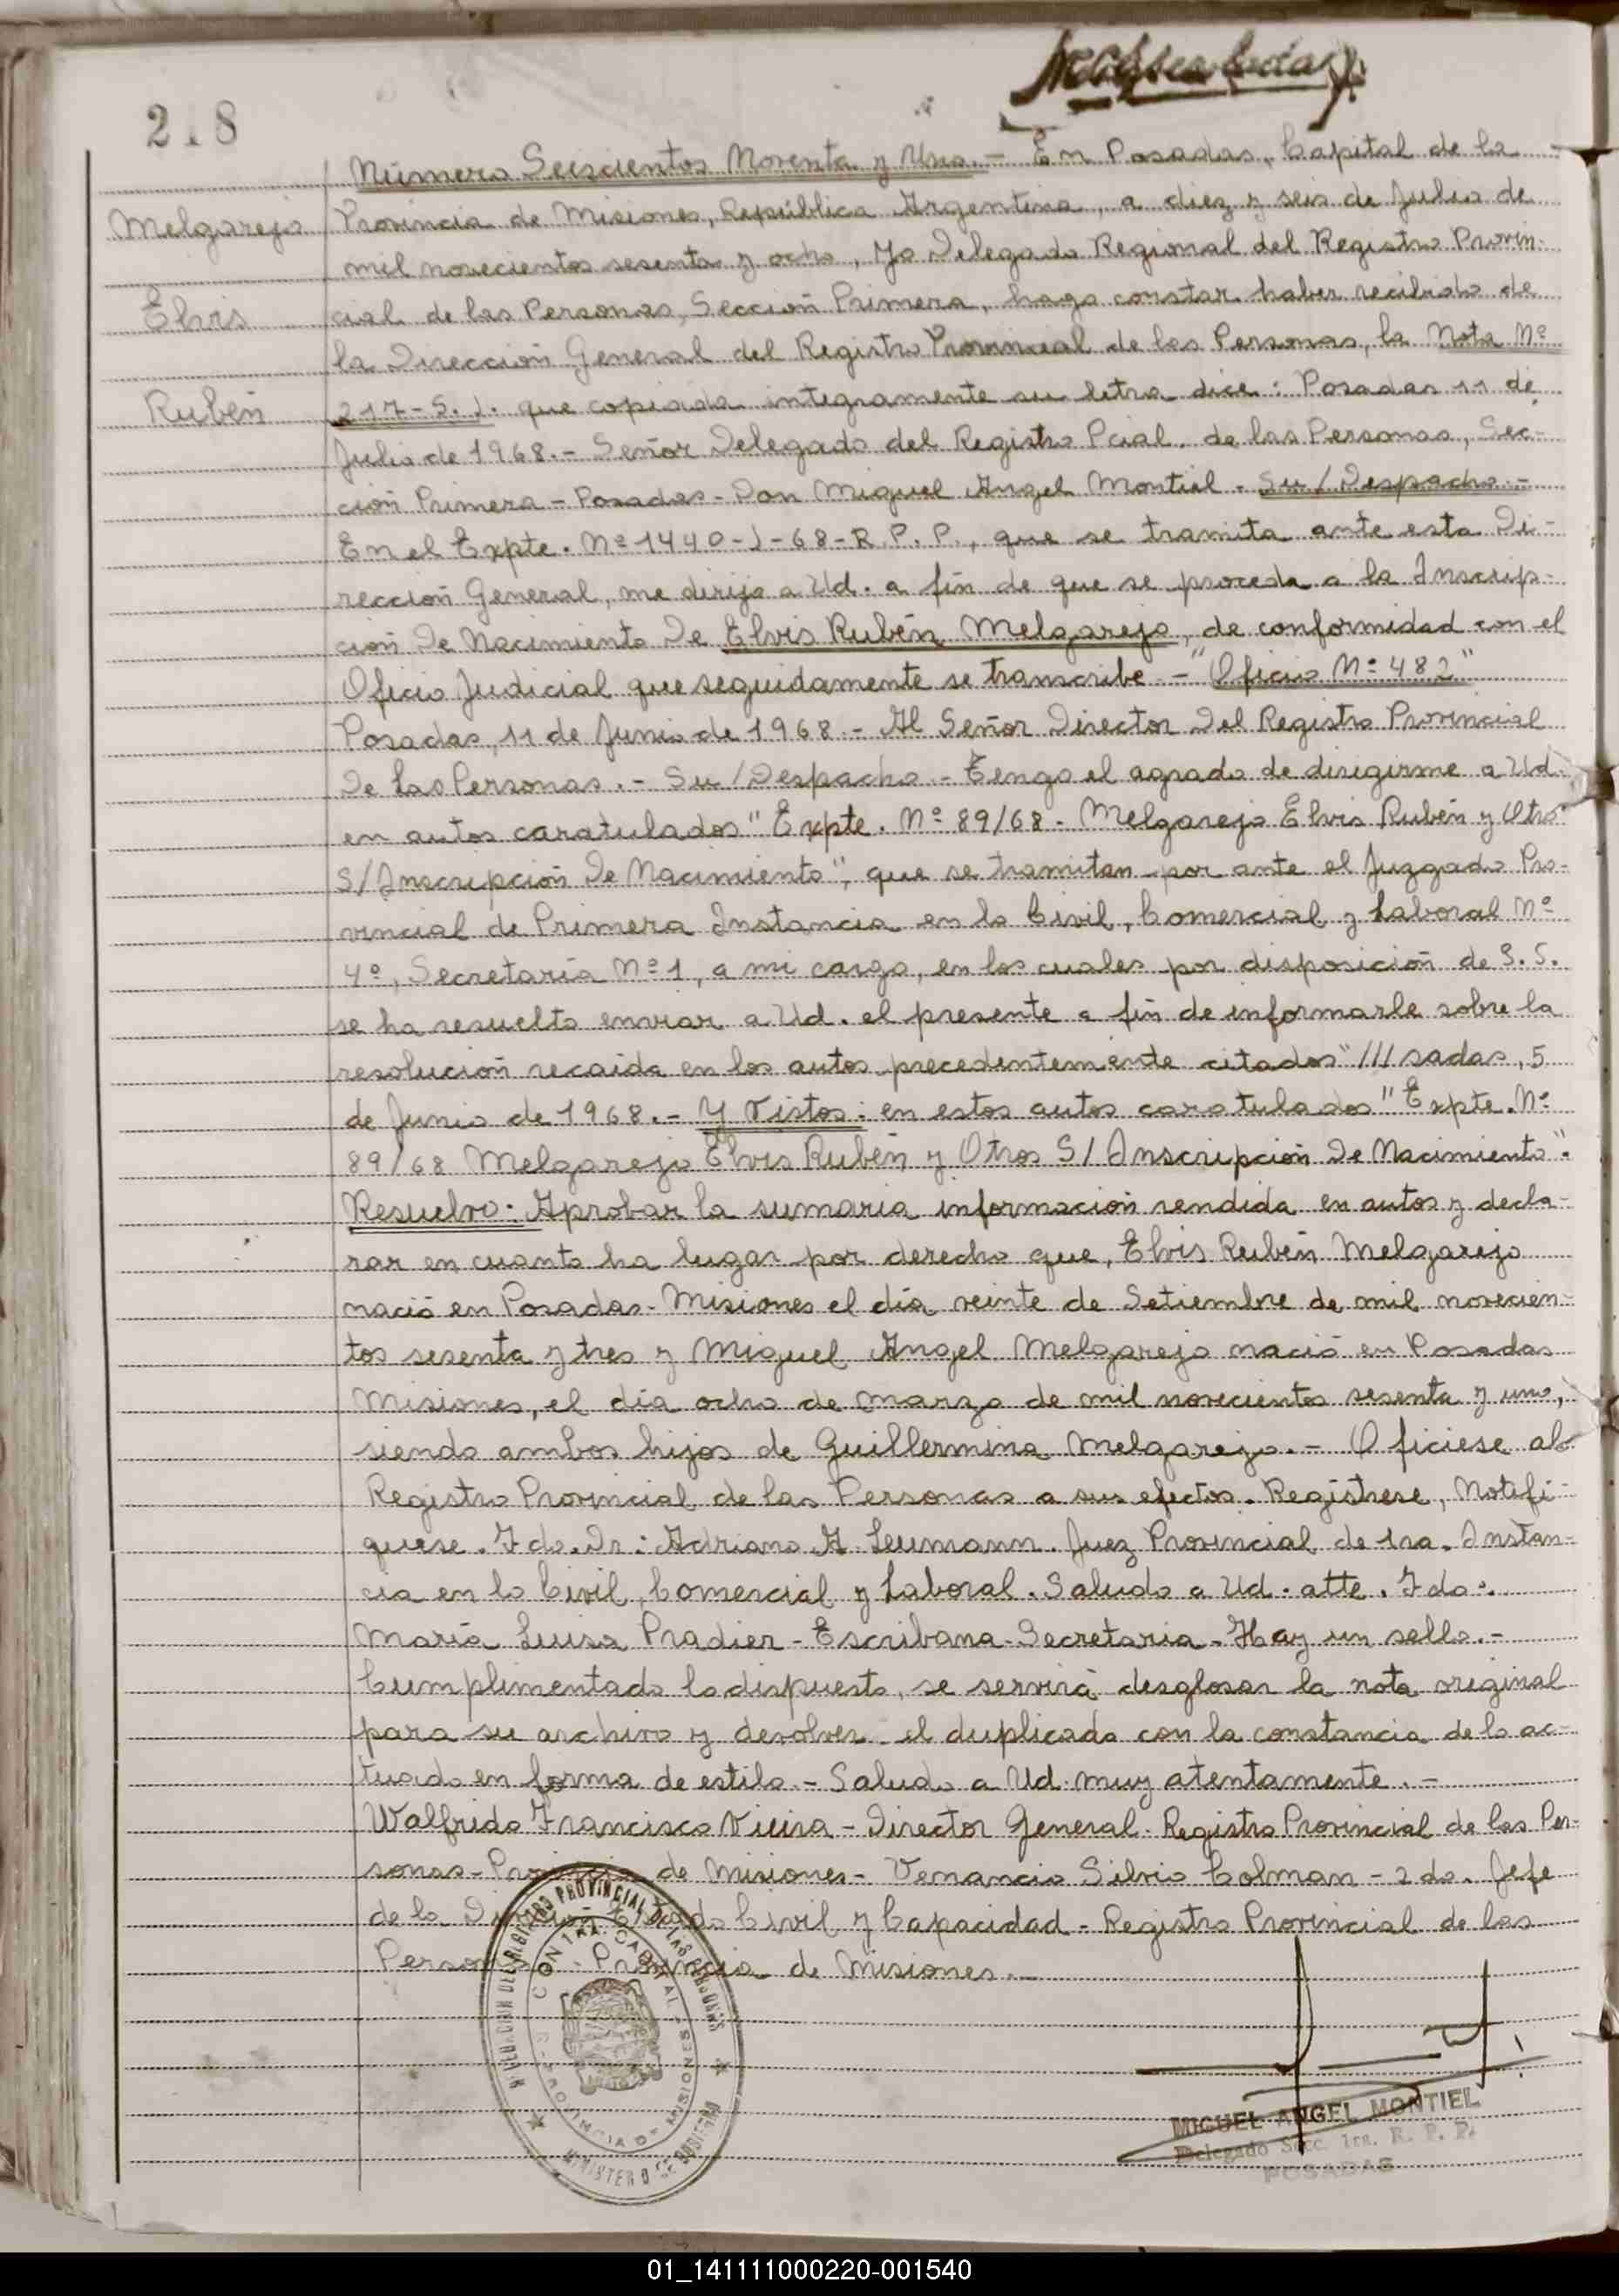 218
Número Seiscientos Noventa y Uno.- En Posadas, Capital de la
Melgarejo
Provincia de Misiones, República Argentina, a diez y seis de Julio de
mil novecientos sesenta y ocho, Yo Delegado Regional del Registro Provin-
Elvis
cial de las Personas, Sección Primera, hago constar haber recibido de
la Dirección General del Registro Provincial de las Personas, la Nota Nº
Rubén
217-S.J. que copiada integramente su letra dice: Posadas 11 de
Julio de 1968.- Señor Delegado del Registro Pcial. de las Personas, Sec-
ción Primera - Posadas - Don Miguel Angel Montiel. Su/Despacho.-
En el Expte. Nº 1440-J-68-R.P.P., que se tramita ante esta Di-
rección General, me dirijo a Ud. a fin de que se proceda a la Inscrip-
ción De Nacimiento De Elvis Rubén Melgarejo, de conformidad con el
Oficio Judicial que seguidamente se transcribe.- "Oficio Nº 482"
Posadas, 11 de Junio de 1968.- Al Señor Director Del Registro Provincial
De Las Personas.- Su/Despacho.- Tengo el agrado de dirigirme a Ud.
en autos caratulados "Expte. Nº 89/68- Melgarejo Elvis Rubén y Otro
S/Inscripción De Nacimiento", que se tramitan por ante el Juzgado Pro-
vincial de Primera Instancia en lo Civil, Comercial y Laboral Nº
4º, Secretaría Nº 1, a mi cargo, en los cuales por disposición de S.S.
se ha resuelto enviar a Ud. el presente a fin de informarle sobre la
resolución recaída en los autos precedentemente citados" /// sadas, 5
de Junio de 1968.- Y Vistos: en estos autos caratulados "Expte. Nº
89/68 Melgarejo Elvis Rubén y Otros S/Inscripción De Nacimiento".
Resuelvo: Aprobar la sumaria información rendida en autos y decla-
rar en cuanto ha lugar por derecho que, Elvis Rubén Melgarejo
nació en Posadas- Misiones el día veinte de Setiembre de mil novecien-
tos sesenta y tres y Miguel Angel Melgarejo nació en Posadas
Misiones, el día ocho de marzo de mil novecientos sesenta y uno,
siendo ambos hijos de Guillermina Melgarejo.- Ofíciese al
Registro Provincial de las Personas a sus efectos. Regístrese, Notifí-
quese. Fdo. Dr: Adriano A. Leumann. Juez Provincial de 1ra. Instan-
cia en lo Civil, Comercial y Laboral. Saludo a Ud. atte. Fdo:
María Luisa Pradier - Escribana-Secretaria- Hay un sello.-
Cumplimentado lo dispuesto, se servirá desglosar la nota original
para su archivo y devolver el duplicado con la constancia de lo ac-
tuado en forma de estilo.- Saludo a Ud. muy atentamente.-
Walfrido Francisco Vieira - Director General. Registro Provincial de las Per-
sonas- Provincia de Misiones- Venancio Silvio Colman - 2do. Jefe
de la División Estado Civil y Capacidad - Registro Provincial de las
Personas - Provincia de Misiones.-
REGISTRO PROVINCIAL DE LAS PERSONAS
CAPITAL
PROVINCIA DE MISIONES
MINISTERIO DE GOBIERNO
MIGUEL ANGEL MONTIEL
Delegado Secc. 1ra. R. P. P.
POSADAS
01_141111000220-001540